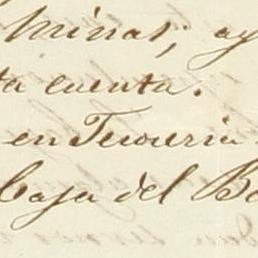 minas; ay
ta cuenta.
en Tesoreria
Caja del Ba